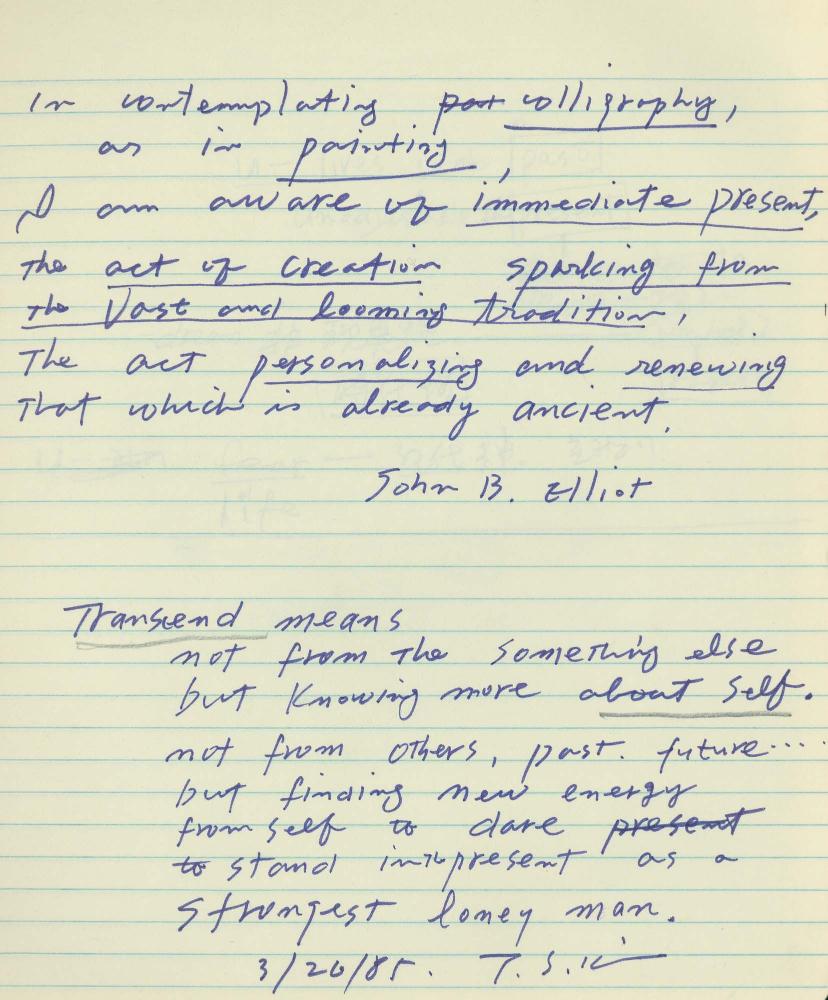 In contemplating par colligraphy,
as in painting,
I am aware of immediate present,
the act of creation sparking from
the vast and looming tradition,
The act personalizing and renewing
That which is already ancient.
John B. Elliot
Transcend means
not from the something else
but Knowing more about self.
not from others, past. future...
but finding new energy
from self to dare present
to stand in the present as a
strongest loney man.
3/20/85. T. S. K